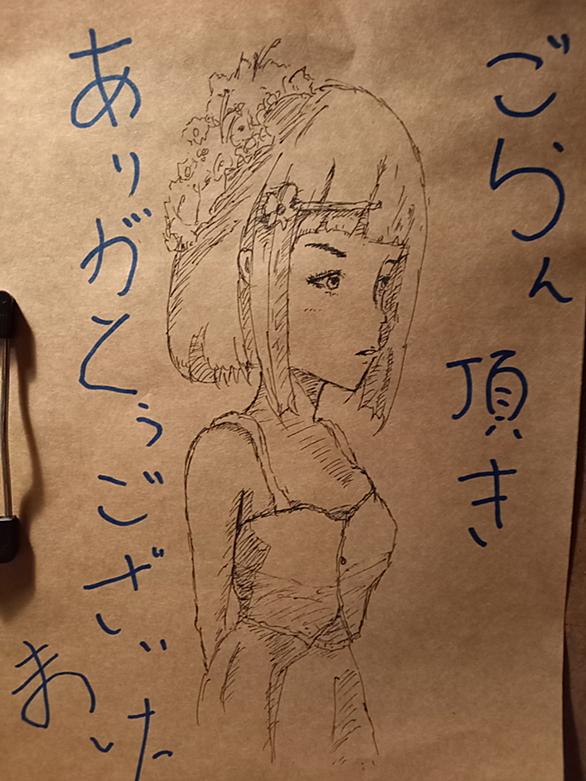 ごらん頂き
ありがとうございました